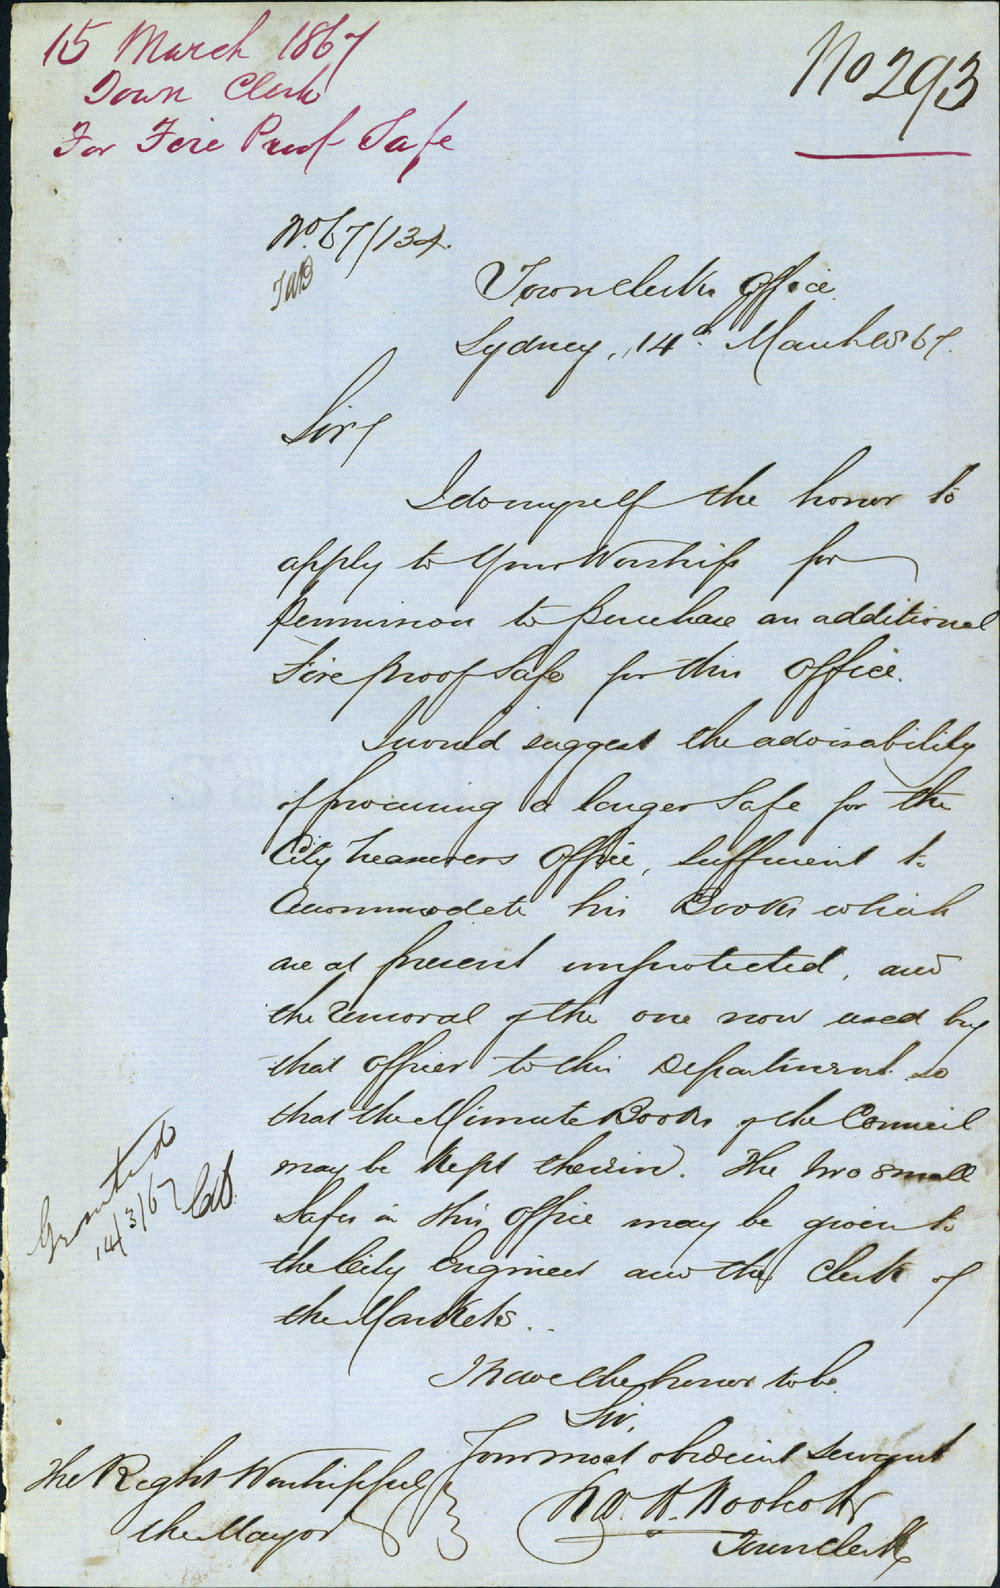 15 March 1867
Town Clerk
For Fire Proof Safe
No 293
No. 67/134.
Town Clerks Office
Sydney, 14th March 1867.
Sir,
I do myself the honor to
apply to Your Worship for
permission to purchase an additional
Fire proof Safe for this Office.
I would suggest the advisability
of procuring a larger Safe for the
City Treasurers Office, sufficient to
accommodate his Books which
are at present unprotected, and
the removal of the one now used by
that officer to this Department so
that the Minute Books of the Council
may be kept therein. The two small
Safes in this Office may be given to
the City Engineer and the Clerk of
the Markets.
Granted
14/3/67
I have the honor to be
Sir,
Your most obedient servant
Town Clerk
The Right Worshipful
the Mayor